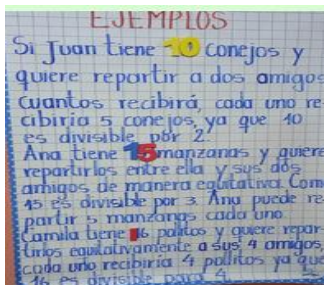 EJEMPLOS
Si Juan tiene 10 conejos y
quiere repartir a dos amigos
cuantos recibirá, cada uno re
cibiria 5 conejos, ya que 10
es divisible por 2.
Ana tiene 15 manzanas y quiere
repartirlos entre ella y sus dos
amigos de manera equitativa Com
15 es divisible por 3. Ana puede re
partir 5 manzanas cada uno
Camila tiene 16 pollitos y quiere repar
tirlos equitativamente a sus 4 amigos,
cada uno recibiria 4 pollitos ya que
16 es divisible para 4